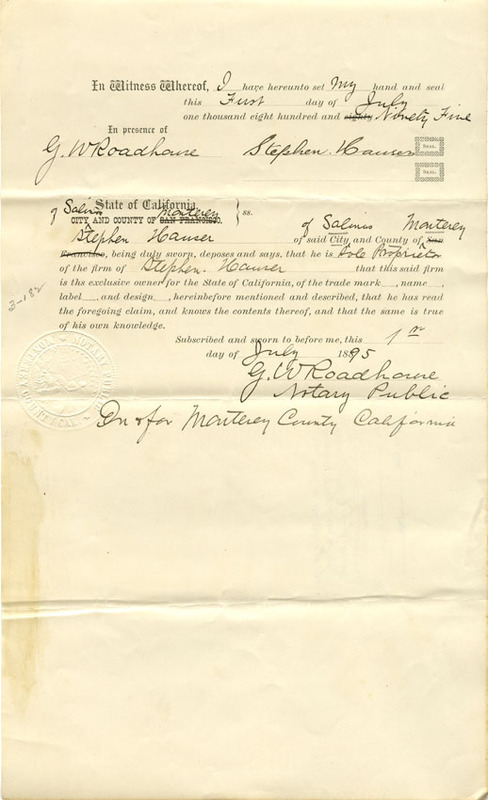 In Witness Whereof, I have hereunto set My hand and seal
this First day of July
one thousand eight hundred and eighty Ninety Five
In presence of
G. W Roadhouse Stephen. Hauser Seal.
Seal.
State of California,
of Salinas Monterey
CITY AND COUNTY OF SAN FRANCISCO. } ss.
Stephen Hauser of Salinas Monterey
of said City and County of San
Francisco, being duly sworn, deposes and says, that he is Sole Proprietor
of the firm of Stephen. Hauser that this said firm
is the exclusive owner for the State of California, of the trade mark, name
label, and design, hereinbefore mentioned and described, that he has read
the foregoing claim, and knows the contents thereof, and that the same is true
of his own knowledge.
Subscribed and sworn to before me, this 1st
day of July 1895
G. W Roadhouse
Notary Public
In & for Monterey County California
3-182